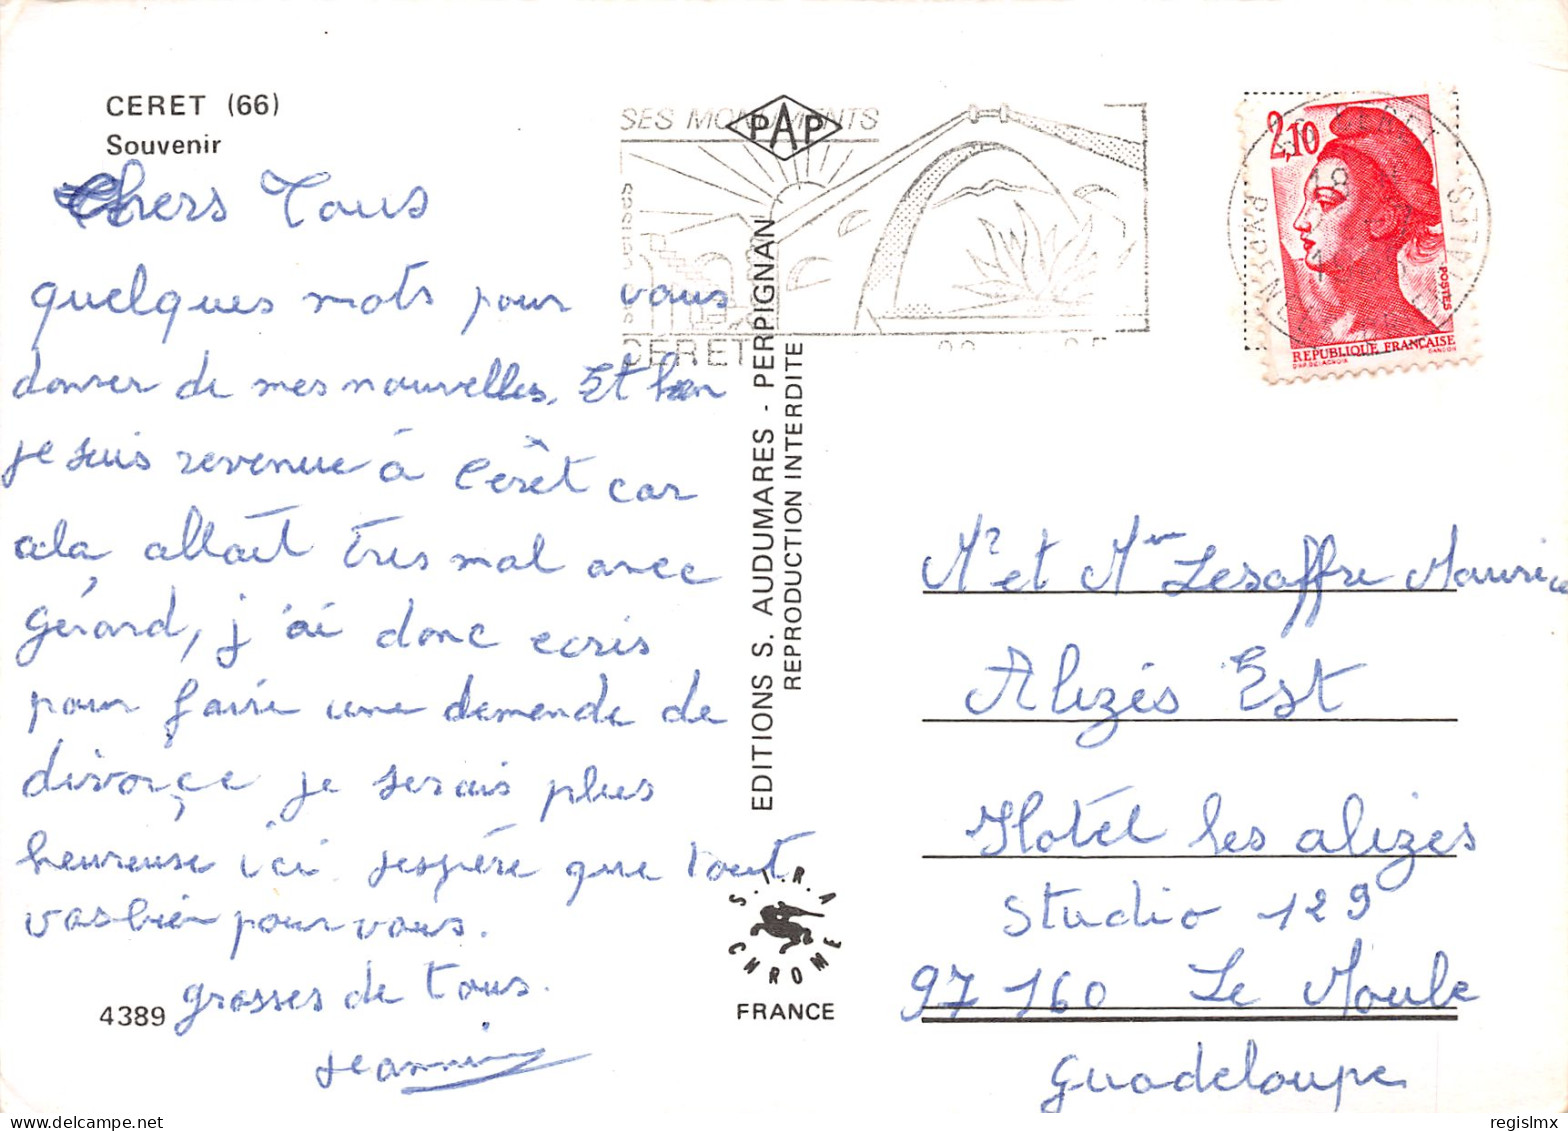 CERET (66)
Souvenir
Chers Tous
quelques mots pour vous
donner de mes nouvelles. Et bien
je suis revenue à Cerêt car
ala allait très mal avec
Gérard, j'ai donc ecris
pour faire une demende de
divorçe je serais plus
heureuse ici jespère que tout
vas bien pour vous.
grosses de tous.
Jeannine
4389
SES MONUMENTS
CERET
PAP
EDITIONS S. AUDUMARES - PERPIGNAN
REPRODUCTION INTERDITE
S.I.R.A
CHROME
FRANCE
2,10
POSTES
REPUBLIQUE FRANÇAISE
Mr et Mme Lesaffre Maurice
Alizés Est
Hotel les alizés
Studio 129
97 160 Le Moule
Guadeloupe
regislmx